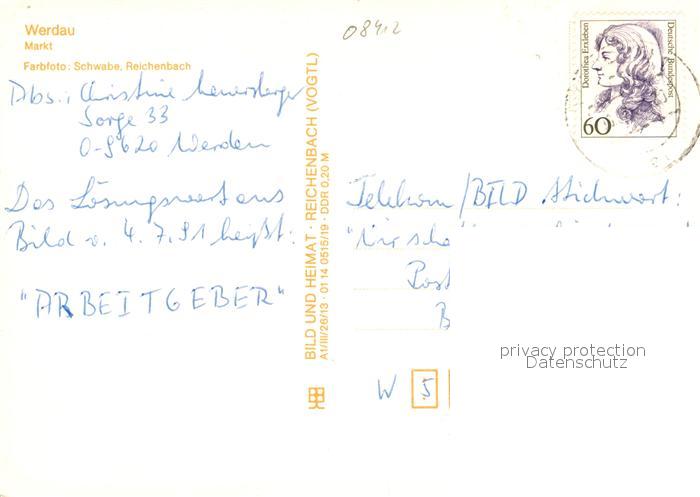 Werdau
Markt
Farbfoto: Schwabe, Reichenbach
08412
Abs.: Christine
Sorge 33
O-9620 Werdau
Das Lösungswort aus
Bild v. 4.7.91 heißt:
"ARBEITGEBER"
BILD UND HEIMAT · REICHENBACH (VOGTL)
A1/III/26/13 · 01 14 0515/19 · DDR 0,20 M
Dorothea Erxleben
Deutsche Bundespost
60
Telekom/BILD Stichwort:
"Wir
Post
B
W 5
privacy protection
Datenschutz